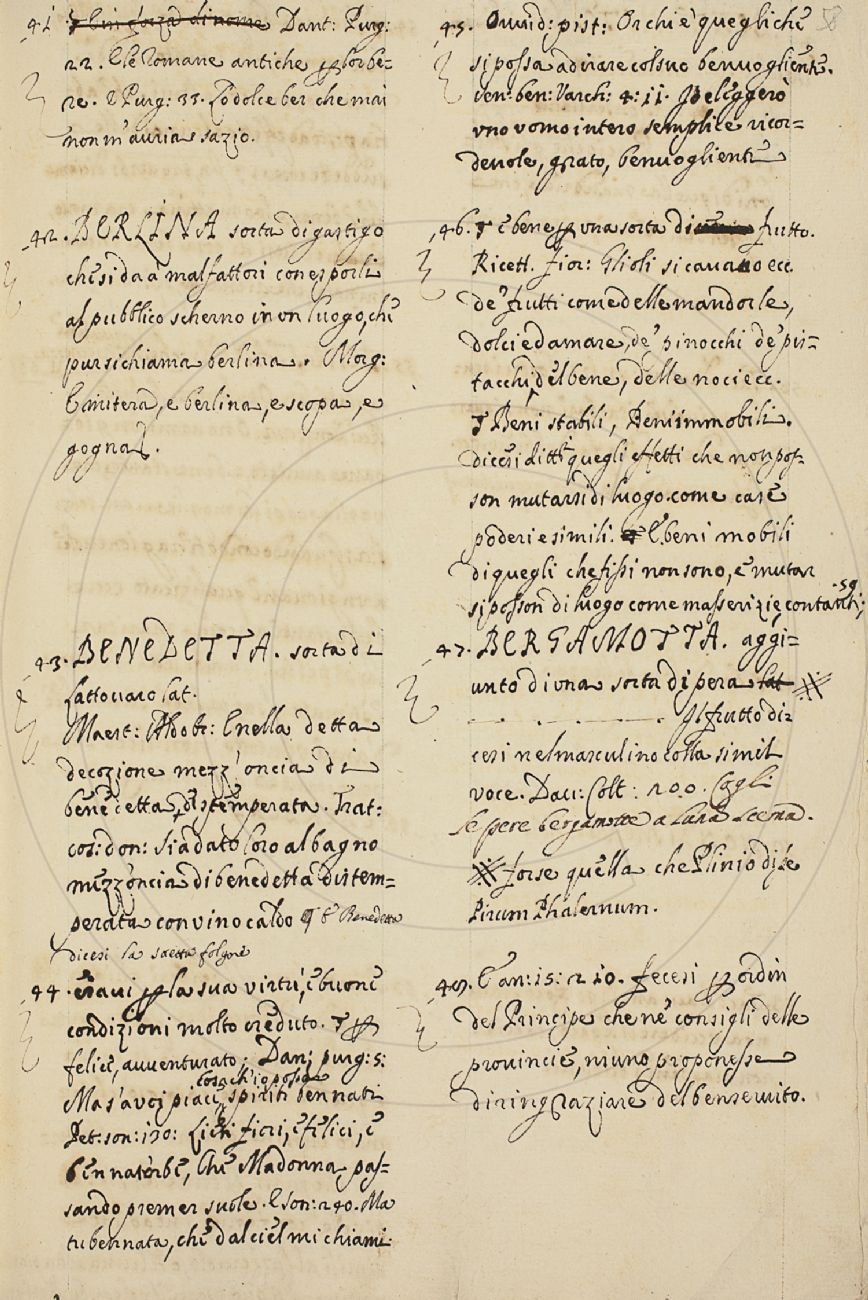 41. Dant: Purg:
22. E le Romane antiche per lor be-
re. E Purg: 33. Lo dolce ber che mai
non m'auria sazio.
42. BERLINA sorta di gastigo
che si da a' malfattori con esporli
al pubblico scherno in vn luogo, che
pur si chiama berlina. Morg:
E mitera, e berlina, e scopa, e
gogna.
43. BENEDETTA. sorta di
lattouaro lat.
Maest: Aldobr: E nella detta
decozione mezz'oncia di
benedetta distemperata. Trat:
cos: don: Sia dato loro al bagno
mezz'oncia di benedetta distem-
perata con vino caldo ¶ E Benedetta
dicesi la saetta folgore
44. e per la sua virtù, e buone
condizioni molto creduto. ¶ per
felice, auuenturato. Dan: purg: 5:
cosa ch'io possa
Ma s'a voi piace, spiriti ben nati
Pet: son: 130: Lieti fiori, e felici, e
ben nate erbe, Che Madonna pas-
sando premer suole. E son: 240. Ma
tu ben nata, che dal ciel mi chiami:
58
45. Ouuid: pist: Or chi è quegli che
si possa adirare col suo benuogliente.
Sen: ben: Varch: 4: 11. Poi eleggerò
vno vomo intero semplice ricor-
deuole, grato, benuogliente
46. ¶ E bene per vna sorta di frutto.
Ricett. fior: Gli oli si cauano ecc.
de' frutti come delle mandorle,
dolci ed amare, de' pinocchi de' pis-
tacchi, del bene, delle noci ecc.
¶ Beni stabili, Beni immobili.
dicesi di tutti quegli effetti che non pos-
son mutarsi di luogo come case
poderi e simili. E beni mobili
di quegli che fissi non sono, e mutar
si posson di luogo come masserizie contanti;
59
47. BERGAMOTTA. aggi-
unto di vna sorta di pera lat
Il frutto di-
cesi nel masculino colla simil
voce. Dau: Colt: 200. Cogli
le pere bergamotte a Luna scema.
forse quella che Plinio disse
Pirum Phalernum.
E an: 15: 210. fecesi per ordin
del Principe che ne' consigli delle
prouincie, niuno proponesse
di ringraziare del benseruito.